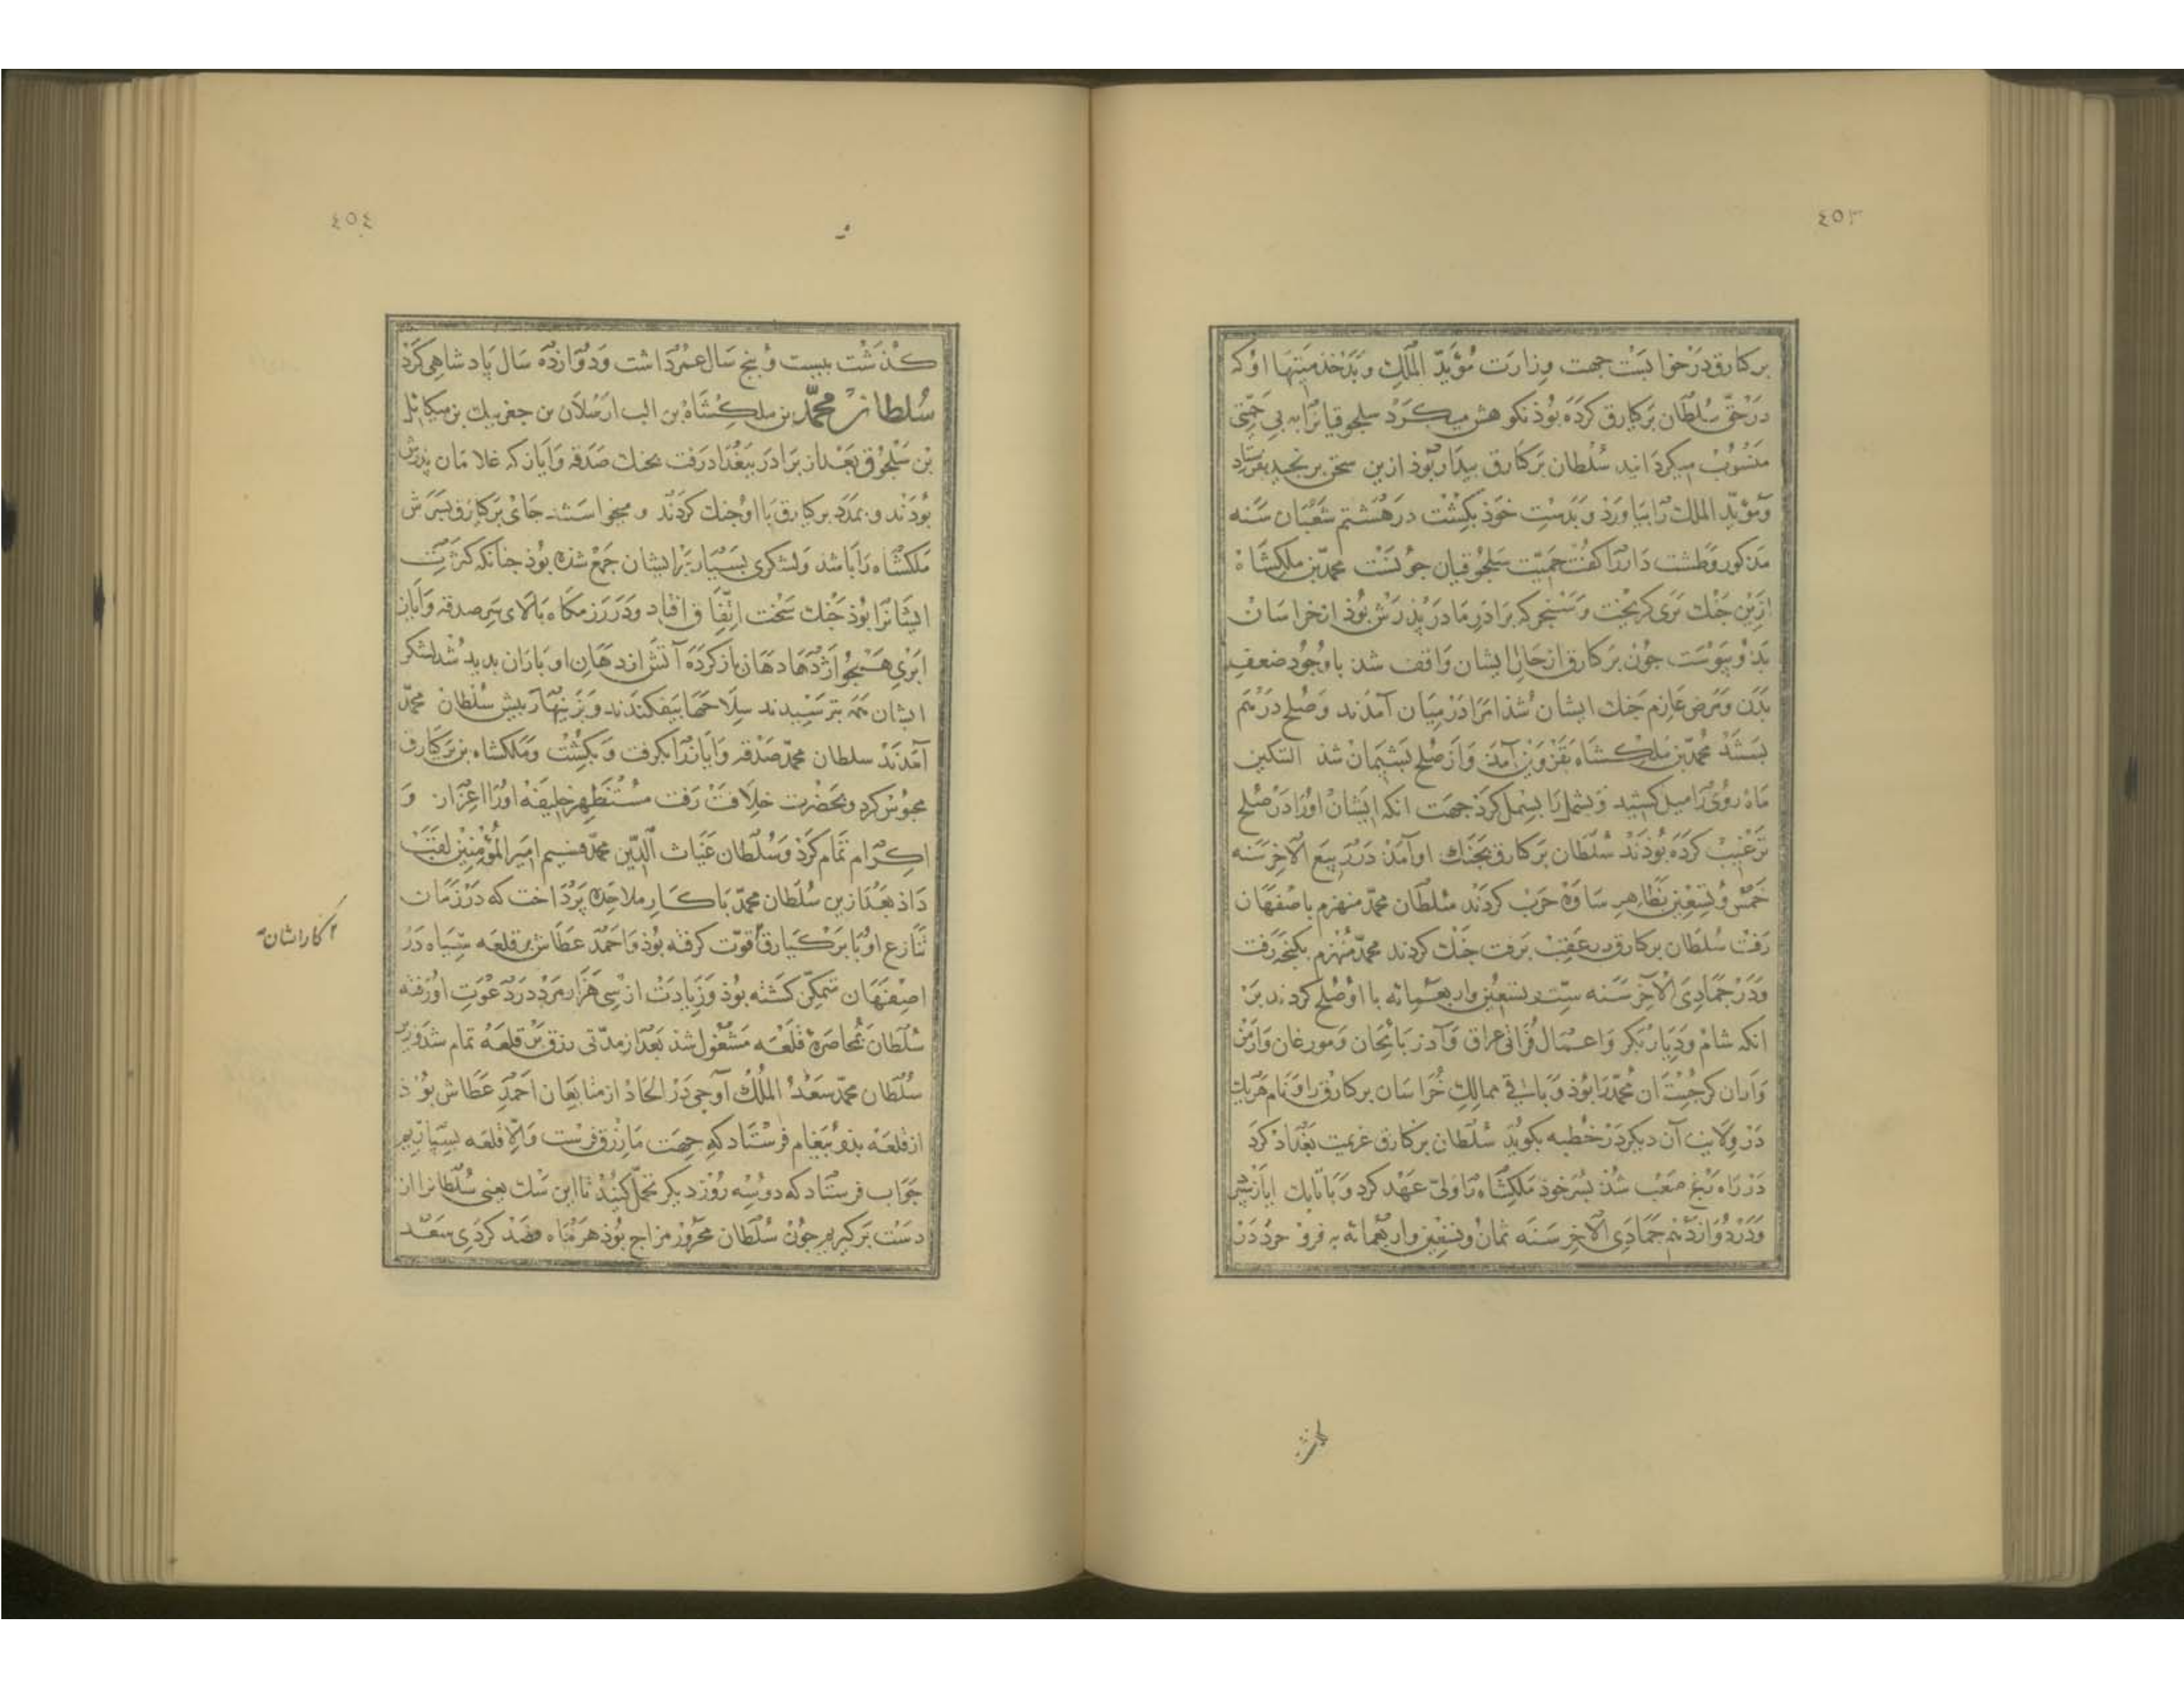 ٤٥٣
برکیارق در خواب بست جهت وزارت مؤیّد الملک و بدخدمتیها او که
در حقّ سلطان برکیارق کرده بوذ نکوهش میکرد سلجوقیانرا به بی حمیّتی
منسوب میکردانید سلطان برکیارق بیدار بوذ ازین سخن برنجید بفرستاد
و مؤیّد الملک را بیاورذ و بدست خوذ بکشت در هشتم شعبان سنه
مذکور و طشت دار را کفت حمیّت سلجوقیان جونست محمّد بن ملکشاه
ازین جنک بری کریخت و سنجر که برادر مادر پذرش بوذ از خراسان
بذو پیوست جون برکیارق از حال ایشان واقف شذ با وجوذ ضعف
بدن و مرض عازم جنک ایشان شذ امرا در میان آمذند و صلح در هم
ببست محمّد بن ملکشاه بقزوین آمذ و از صلح بشیمان شذ التکین
ماه روی را میل کشید و بشمل را بسمل کرد جهت انکه ایشان اورا در صلح
ترغیب کرده بوذند سلطان برکیارق بجنک او آمذ در ربیع الآخر سنه
خمس و تسعین بظاهر ساوه حرب کردند سلطان محمّد منهزم باصفهان
رفت سلطان برکیارق در عقبش برفت جنک کردند محمّد منهزم بکنجه رفت
و در جمادی الآخر سنه ستّ و تسعین و اربعمایه با او صلح کردند بر
انکه شام و دیار بکر و اعمال فراتی عراق و آذربایجان و مورغان و ارمن
و اران کرجستان محمّد را بوذ و باقی ممالک خراسان برکیارق را و نام هریک
در ولایت آن دیکر در خطبه بکویند سلطان برکیارق عزیمت بغداد کرد
در راه رنج صعب شذ بسر خوذ ملکشاه را ولیّ عهد کرد و باتابک ایاز سبرد
و در دوازدهم جمادی الآخر سنه ثمان و تسعین و اربعمائه به فروجرد در
گذشت
٤٥٤
کذشت بیست و پنج سال عمر داشت و دوازده سال پادشاهی کرد
سلطان محمّد بن ملکشاه بن الب ارسلان بن جغریبک بن میکائیل
بن سلجوق بعد از برادر ببغداد رفت بجنک صدقه و ایاز که غلامان پدرش
بوذند و بمدد برکیارق با او جنک کردند و میخواستند جای برکیارق بسرش
ملکشاه را باشد و لشکری بسیار بر ایشان جمع شذه بوذ جنانکه کثرت
ایشانرا بوذ جنک سخت اتّفاق افتاد و در رزمکاه بالای سر صدقه و ایاز
ابری همجو اژدها دهان باز کرده آتش از دهان او باران بدید شد لشکر
ایشان همه بترسیدند سلاحها بیفکندند و بزینهار پیش سلطان محمّد
آمذند سلطان محمّد صدقه و ایاز را بکرفت و بکشت و ملکشاه بن برکیارق
محبوس کرد و بحضرت خلافت رفت مستظهر خلیفه اورا اعزاز و
اکرام تمام کرد و سلطان غیاث الدّین محمّد قسیم امیر المؤمنین لقبش
داذ بعد ازین سلطان محمّد با کار ملاحده پرداخت که در زمان
تنازع او با برکیارق قوّت کرفته بوذ و احمد عطّاش بر قلعه سیاه در
اصفهان متمکّن کشته بوذ و زیادت از سی هزار مرد در دعوت او رفته
سلطان بمحاصره قلعه مشغول شذ بعد از مدّتی رزق بر قلعه تمام شد وزیر
سلطان محمّد سعد الملک آوجی در الحاد از متابعان احمد عطاش بوذ
از قلعه بذو پیغام فرستاد که جهت ما رزق فرست و الّا قلعه بسپاریم
جواب فرستاد که دو سه روز دیکر تحمّل کنید تا این سک یعنی سلطانرا از
دست برکیریم جون سلطان محرور مزاج بوذ هر ماه فصد کردی سعد
۲ کارایشان